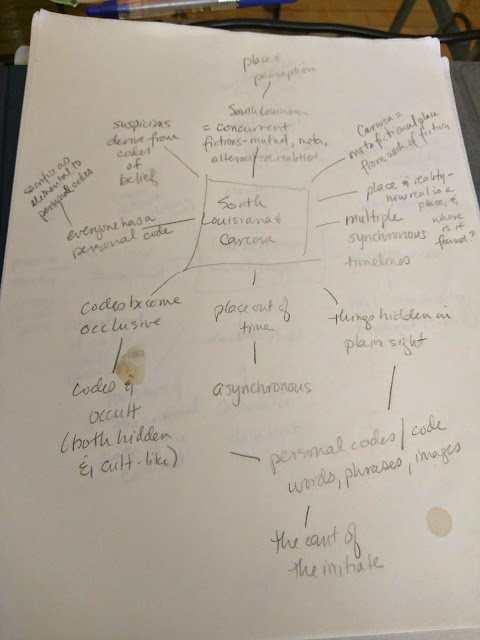 place &
perception
South Louisiana
= concurrent
fictions - mutual, meta,
alternative realities
suspicions
derive from
codes
of
belief
Carcosa =
metafictional place
from work of fiction
sacrifice as
elemental to
personal codes
South
Louisiana &
Carcosa
place & reality -
how real is a
place, &
where
is it
found?
everyone has a
personal code
multiple
synchronous
timelines
codes become
occlusive
place out of
time
things hidden in
plain sight
codes &
occult
(both hidden
& cult-like)
asynchronous
personal codes / code
words, phrases, images
the cant of
the initiate